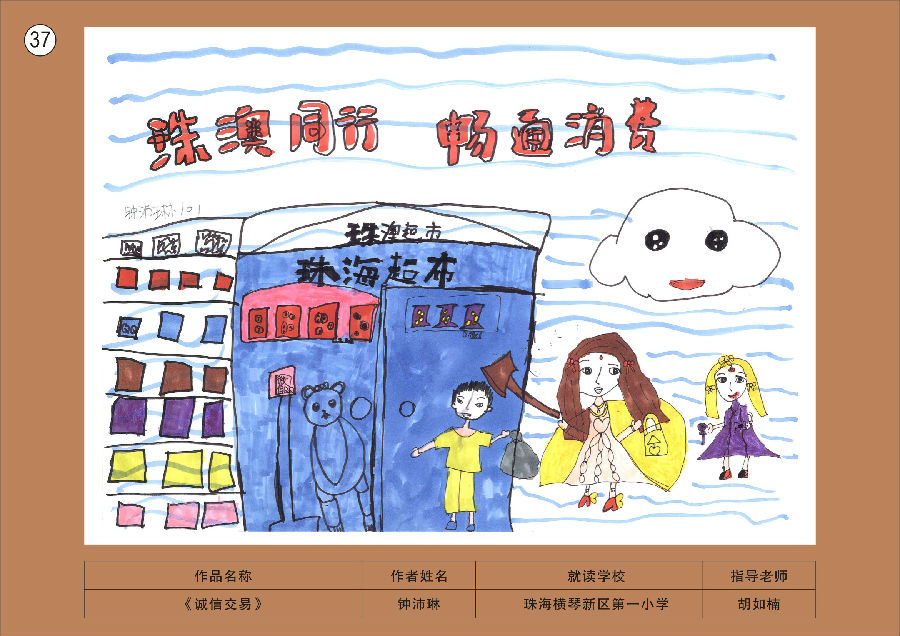 37
珠澳同行 畅通消费
钟沛琳101
珠澳超市
珠海超市
作品名称 作者姓名 就读学校 指导老师
《诚信交易》 钟沛琳 珠海横琴新区第一小学 胡如楠